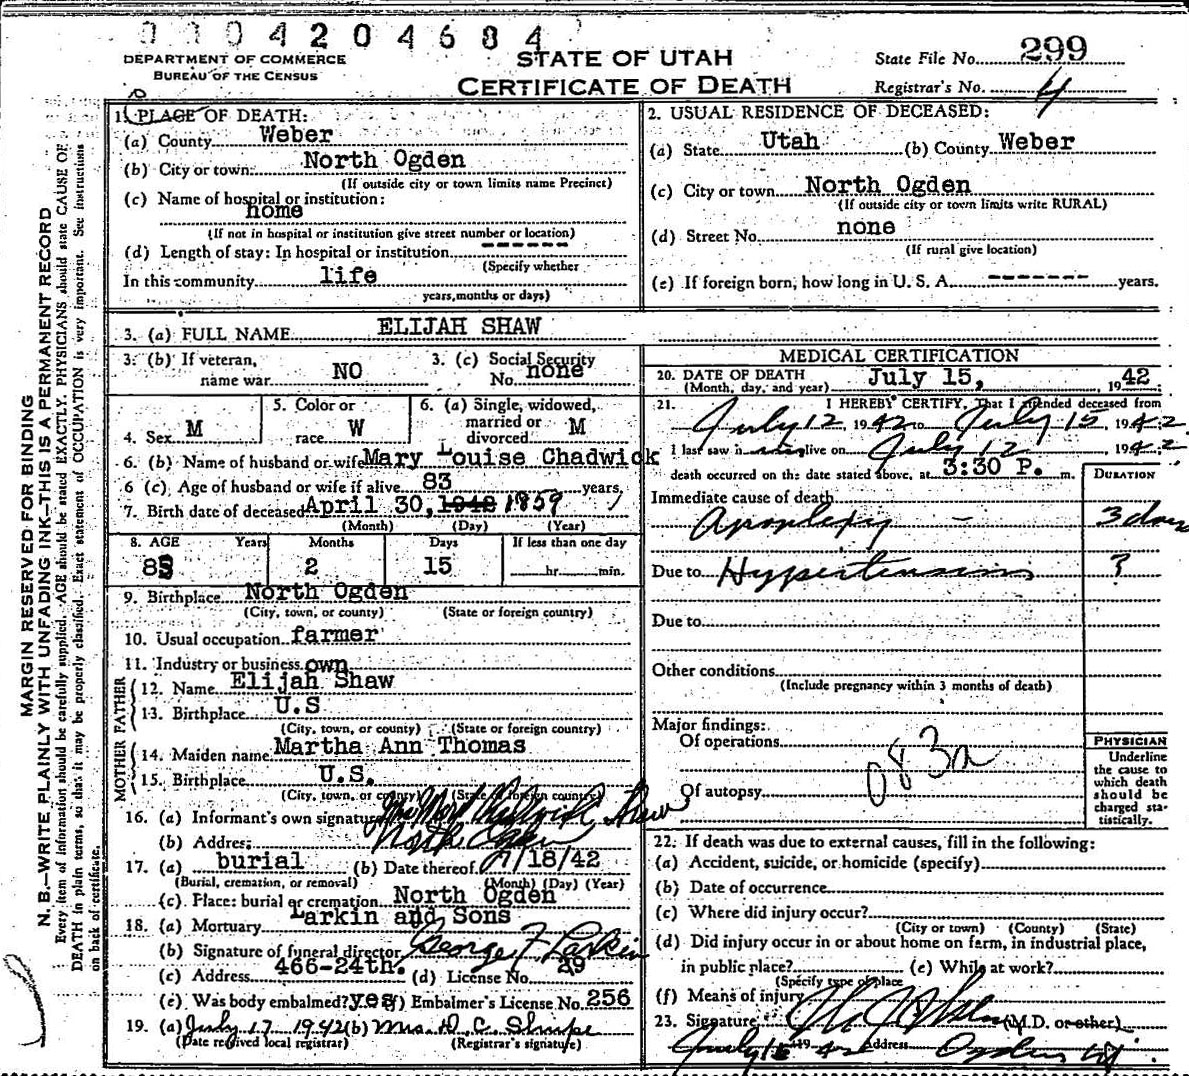 0 0 0 4 2 0 4 6 8 4
DEPARTMENT OF COMMERCE
BUREAU OF THE CENSUS
STATE OF UTAH
CERTIFICATE OF DEATH
State File No. 299
Registrar's No. 4
MARGIN RESERVED FOR BINDING
N. B.—WRITE PLAINLY WITH UNFADING INK—THIS IS A PERMANENT RECORD
Every item of information should be carefully supplied. AGE should be stated EXACTLY. PHYSICIANS should state CAUSE OF
DEATH in plain terms, so that it may be properly classified. Exact statement of OCCUPATION is very important. See instructions
on back of certificate.
1. PLACE OF DEATH:
(a) County Weber
(b) City or town: North Ogden
(If outside city or town limits name Precinct)
(c) Name of hospital or institution:
home
(If not in hospital or institution give street number or location)
(d) Length of stay: In hospital or institution ------
(Specify whether
In this community life
years, months or days)
2. USUAL RESIDENCE OF DECEASED:
(a) State Utah (b) County Weber
(c) City or town North Ogden
(If outside city or town limits write RURAL)
(d) Street No. none
(If rural give location)
(e) If foreign born, how long in U. S. A. ------- years.
3. (a) FULL NAME ELIJAH SHAW
3. (b) If veteran,
name war NO
3. (c) Social Security
No. none
4. Sex M
5. Color or
race W
6. (a) Single, widowed,
married or
divorced M
6. (b) Name of husband or wife Mary Louise Chadwick
6 (c) Age of husband or wife if alive 83 years
7. Birth date of deceased April 30, 1942 1859
(Month) (Day) (Year)
8. AGE Years Months Days If less than one day
83 2 15 hr. min.
9. Birthplace North Ogden
(City, town, or county) (State or foreign country)
10. Usual occupation farmer
11. Industry or business own
FATHER
12. Name Elijah Shaw
13. Birthplace U.S
(City, town, or county) (State or foreign country)
MOTHER
14. Maiden name Martha Ann Thomas
15. Birthplace U.S.
(City, town, or county) (State or foreign country)
16. (a) Informant's own signature Mrs Mary Chadwick Shaw
(b) Address North Ogden
17. (a) burial (b) Date thereof 7/18/42
(Burial, cremation, or removal) (Month) (Day) (Year)
(c) Place: burial or cremation North Ogden
18. (a) Mortuary Larkin and Sons
(b) Signature of funeral director George F Larkin
(c) Address 466-24th. (d) License No. 29
(e) Was body embalmed? yes (f) Embalmer's License No. 256
19. (a) July 17 1942 (b) Mrs. D. C. Shupe
(Date received local registrar) (Registrar's signature)
MEDICAL CERTIFICATION
20. DATE OF DEATH July 15, 1942
(Month, day, and year)
21. I HEREBY CERTIFY, That I attended deceased from
July 12 1942 to July 15 1942
I last saw him alive on July 12 1942
death occurred on the date stated above, at 3:30 P. m.
DURATION
Immediate cause of death
Apoplexy - 3 days
Due to Hypertension ?
Due to
Other conditions
(Include pregnancy within 3 months of death)
Major findings:
Of operations
083a
Of autopsy
PHYSICIAN
Underline
the cause to
which death
should be
charged sta-
tistically.
22. If death was due to external causes, fill in the following:
(a) Accident, suicide, or homicide (specify)
(b) Date of occurrence
(c) Where did injury occur?
(City or town) (County) (State)
(d) Did injury occur in or about home on farm, in industrial place,
in public place? (e) While at work?
(Specify type of place
(f) Means of injury
23. Signature (M.D. or other)
July 15 1942 Address Ogden Ut